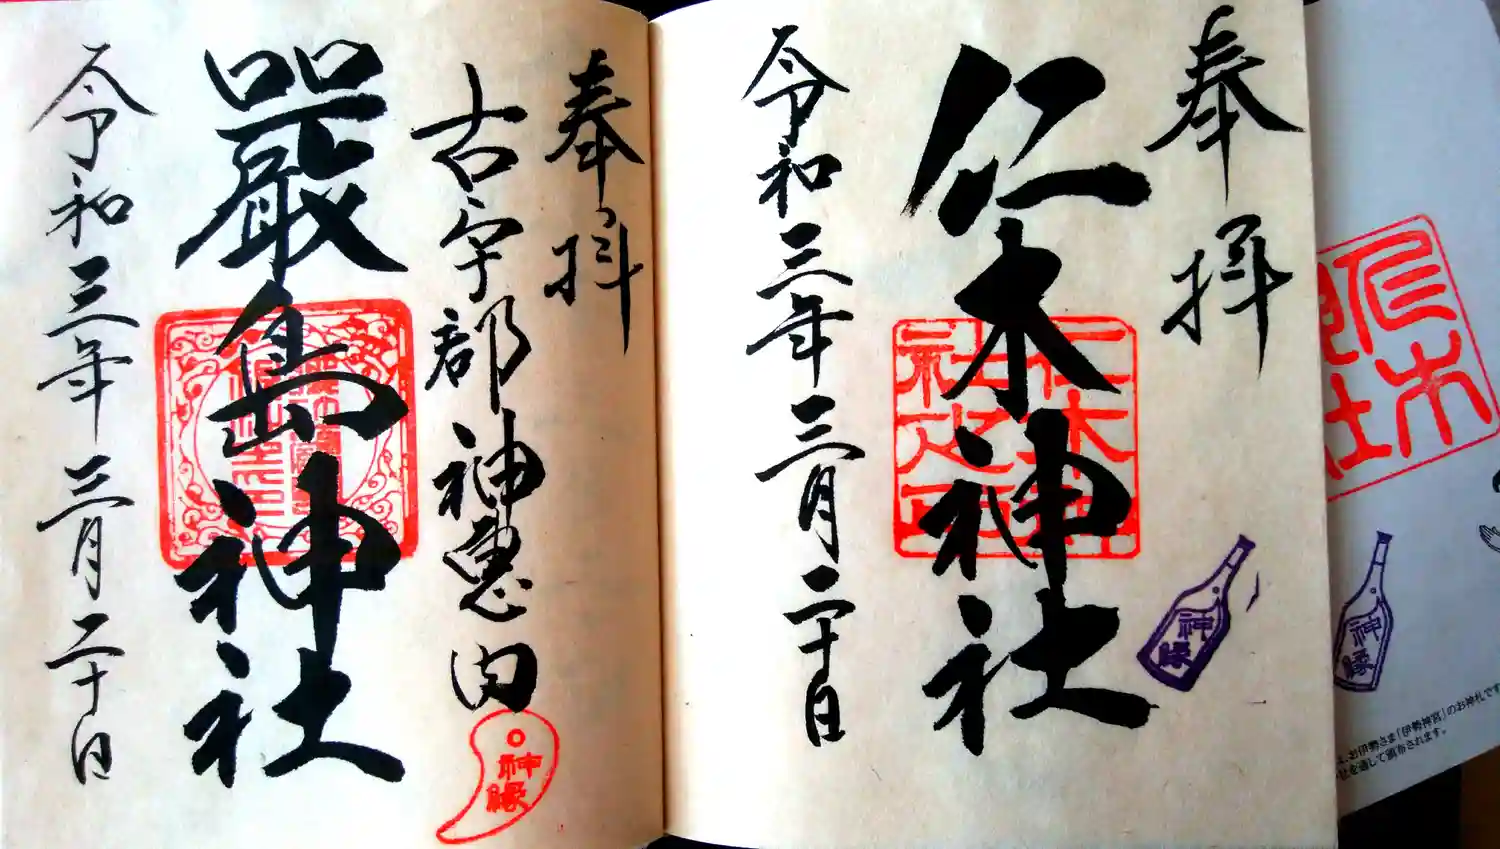 奉拝
仁木神社
令和三年三月二十日
仁木神
社之印
神縁
奉拝
古宇部神惠内
嚴島神社
令和三年三月二十日
神縁
仁木
神縁
お伊勢さま「伊勢神宮」のお神札です
社を通して頒布されます。